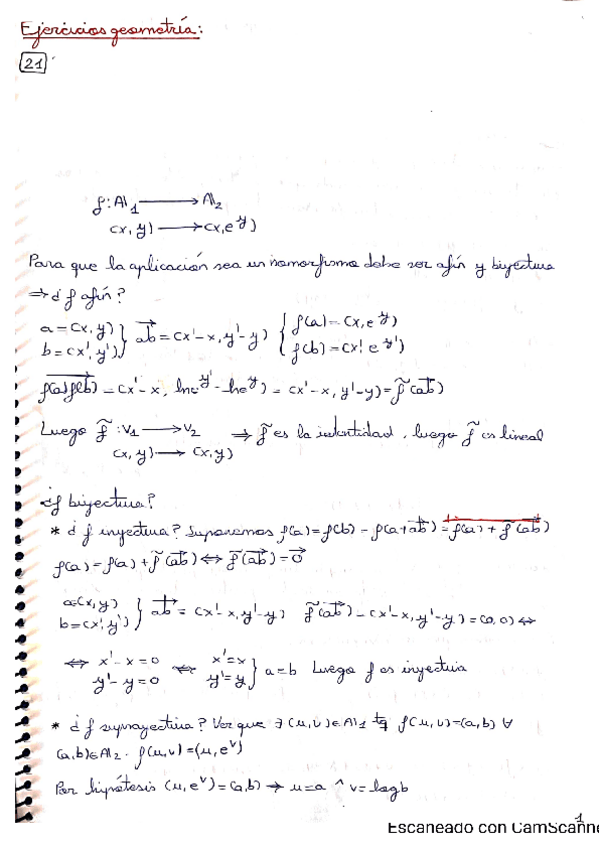 Ejercicios geometría:
21
f: A₁ ⟶ A₂
(x, y) ⟶ (x, e^y)
Para que la aplicación sea un isomorfismo debe ser afín y biyectiva
⇒ ¿f afín?
a = (x, y)
b = (x', y') } ab→ = (x'-x, y'-y) { f(a) = (x, e^y)
f(b) = (x', e^y')
f(a)f(b)→ = (x'-x, ln e^y' - ln e^y) = (x'-x, y'-y) = f̃(ab→)
Luego f̃: V₁ ⟶ V₂ ⇒ f̃ es la identidad, luego f̃ es lineal
(x, y) ⟶ (x, y)
¿f biyectiva?
* ¿f inyectiva? Suponemos f(a) = f(b) = f(a+ab→) = f(a) + f̃(ab→)
f(a) = f(a) + f̃(ab→) ⇔ f̃(ab→) = 0→
a=(x, y)
b=(x', y') } ab→ = (x'-x, y'-y) f̃(ab→) = (x'-x, y'-y) = (0, 0) ⇔
⇔ x'-x = 0 ⇔ x'=x
y'-y = 0 y'=y } a=b Luego f es inyectiva
* ¿f suprayectiva? Ver que ∃ (u, v) ∈ A₁ tq f(u, v) = (a, b) ∀
(a, b) ∈ A₂. f(u, v) = (u, e^v)
Por hipótesis (u, e^v) = (a, b) → u=a ^ v=log b
1
Escaneado con CamScanne